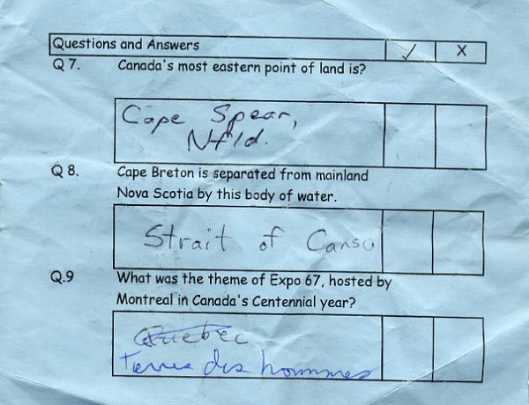 Questions and Answers ✓ X
Q 7. Canada's most eastern point of land is?
Cape Spear,
Nfld.
Q 8. Cape Breton is separated from mainland
Nova Scotia by this body of water.
Strait of Canso
Q.9 What was the theme of Expo 67, hosted by
Montreal in Canada's Centennial year?
Quebec
Terres des hommes